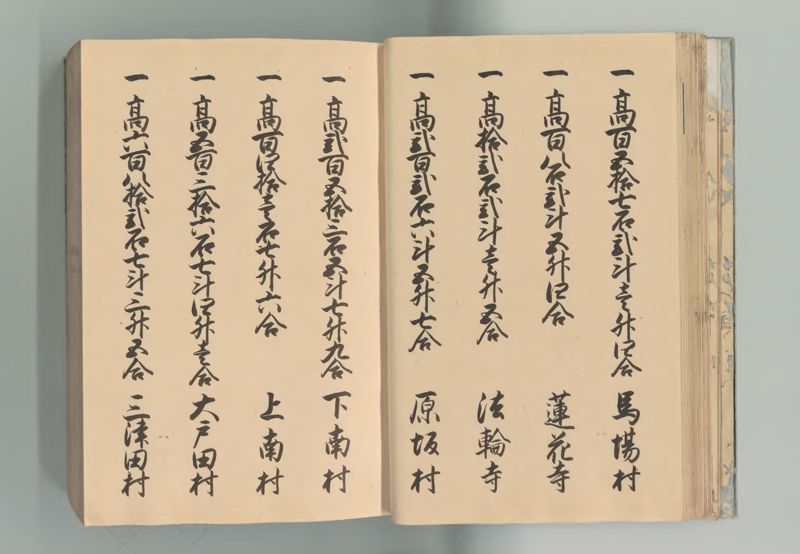 一 高百五拾七石弐斗壱升四合 馬場村
一 高百八石弐斗五升四合 蓮花寺
一 高拾弐石弐斗壱升五合 法輪寺
一 高弐百弐石六斗五升七合 原坂村
一 高弐百五拾三石五斗七升九合 下南村
一 高百四拾壱石七升六合 上南村
一 高五百三拾六石七斗四升壱合 大戸田村
一 高六百八拾弐石七斗三升五合 三津田村